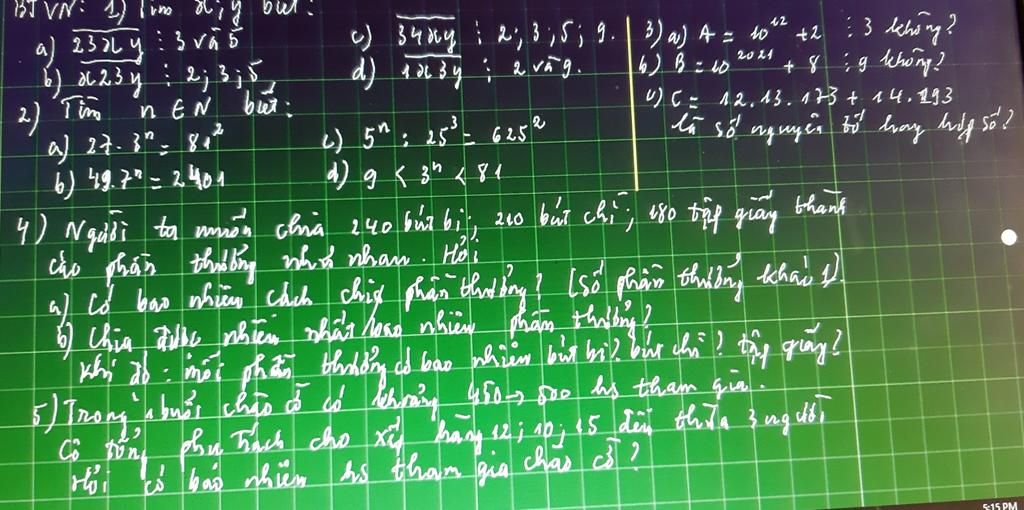 BTVN: 1) Tìm x, y biết:
a) 23xy ⋮ 3 và 5
b) x23y ⋮ 2; 3; 5
c) 34xy ⋮ 2; 3; 5; 9.
d) 1x3y ⋮ 2 và 9.
2) Tìm n ∈ N biết:
a) 27 . 3ⁿ = 81²
b) 49.7ⁿ = 2401
c) 5ⁿ : 25³ = 625²
d) 9 < 3ⁿ < 81
3) a) A = 10¹² + 2 ⋮ 3 không?
b) B = 10²⁰²¹ + 8 ⋮ 9 không?
c) C = 12.13.173 + 14.293
là số nguyên tố hay hợp số?
4) Người ta muốn chia 240 bút bi; 210 bút chì; 180 tập giấy thành
các phần thưởng như nhau. Hỏi
a) Có bao nhiêu cách chia phần thưởng? (Số phần thưởng khác 1).
b) Chia được nhiều nhất bao nhiêu phần thưởng?
Khi đó: mỗi phần thưởng có bao nhiêu bút bi? bút chì? tập giấy?
5) Trong 1 buổi chào cờ có khoảng 450 → 500 hs tham gia.
Cô tổng phụ trách cho xếp hàng 12; 10; 15 đều thừa 3 người
Hỏi có bao nhiêu hs tham gia chào cờ?
5:15 PM